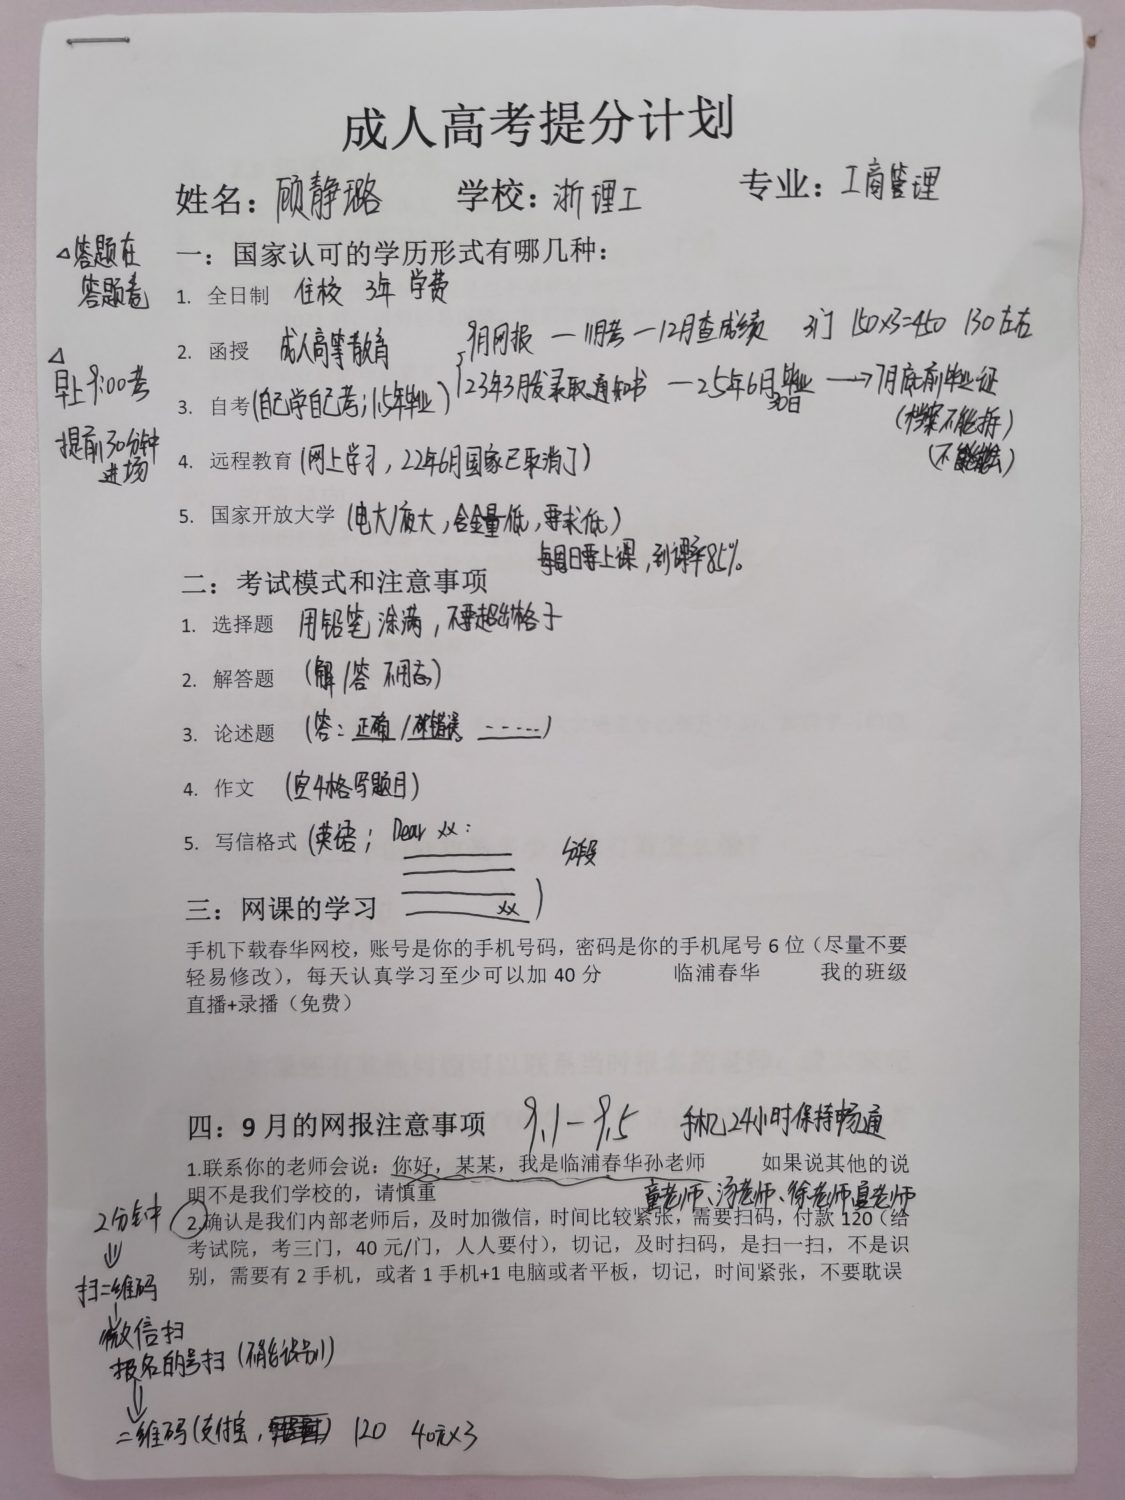 成人高考提分计划
姓名：顾静璐 学校：浙理工 专业：工商管理
△答题在
答题卷
一：国家认可的学历形式有哪几种：
1. 全日制 住校 3年 学费
2. 函授 成人高等教育 9月网报 — 11月考 — 12月查成绩 3门 150×3=450 130左右
△
早上9:00考
提前30分钟
进场
3. 自考(自己学自己考；15年毕业) 23年3月发录取通知书 — 25年6月毕业 → 7月底前毕业证
30日
(档案不能拆)
4. 远程教育(网上学习，22年6月国家已取消了)
5. 国家开放大学 (电大/夜大，含金量低，要求低)
每周日要上课，到课率85%
二：考试模式和注意事项
1. 选择题 用铅笔涂满，不要超出格子
2. 解答题 (解/答 不用忘)
3. 论述题 (答：正确/错误 ......)
4. 作文 (空4格写题目)
5. 写信格式 (英语； Dear xx：
分段
xx )
三：网课的学习
手机下载春华网校，账号是你的手机号码，密码是你的手机尾号 6 位（尽量不要
轻易修改），每天认真学习至少可以加 40 分 临浦春华 我的班级
直播+录播（免费）
四：9 月的网报注意事项 9.1－9.5 手机24小时保持畅通
1.联系你的老师会说：你好，某某，我是临浦春华孙老师 如果说其他的说
明不是我们学校的，请慎重 童老师、汤老师、徐老师
2.确认是我们内部老师后，及时加微信，时间比较紧张，需要扫码，付款 120（给
考试院，考三门，40 元/门，人人要付），切记，及时扫码，是扫一扫，不是识
别，需要有 2 手机，或者 1 手机+1 电脑或者平板，切记，时间紧张，不要耽误
2分钟
扫二维码
微信扫
报名的号扫 (不能识别)
二维码(支付宝， ) 120 40元×3